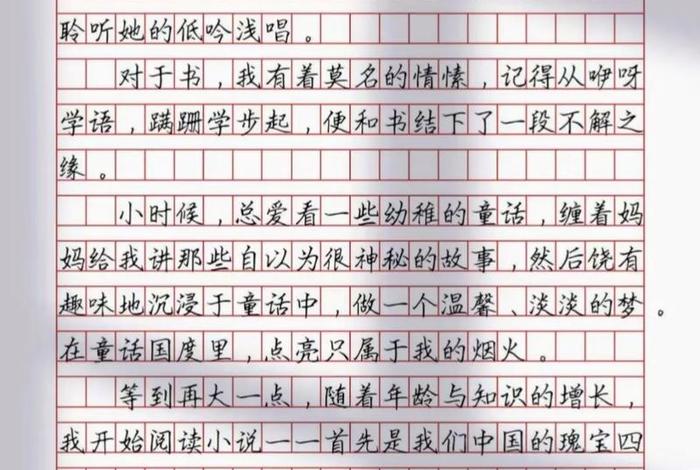 聆听她的低吟浅唱。
对于书，我有着莫名的情愫，记得从咿呀
学语，蹒跚学步起，便和书结下了一段不解之
缘。
小时候，总爱看一些幼稚的童话，缠着妈
妈给我讲那些自以为很神秘的故事，然后饶有
趣味地沉浸于童话中，做一个温馨、淡淡的梦。
在童话国度里，点亮只属于我的烟火。
等到再大一点，随着年龄与知识的增长，
我开始阅读小说一一首先是我们中国的瑰宝四